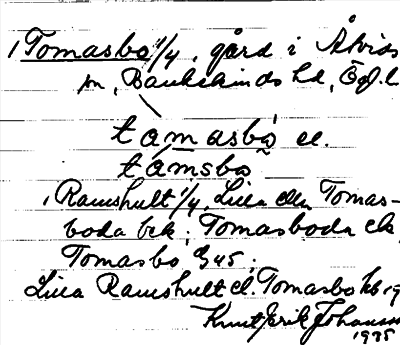 1 Tomasbo 1/4, gård i Åtvids
sn, Bankekinds hd, Ög. l
tamasbo el.
tamsbo
1 Ramshult 1/4, Lilla eller Tomas-
boda bek; Tomasboda ek
Tomasbo G45;
Lilla Ramshult el. Tomasbo hb 19
Knut Erik Johansson
1935